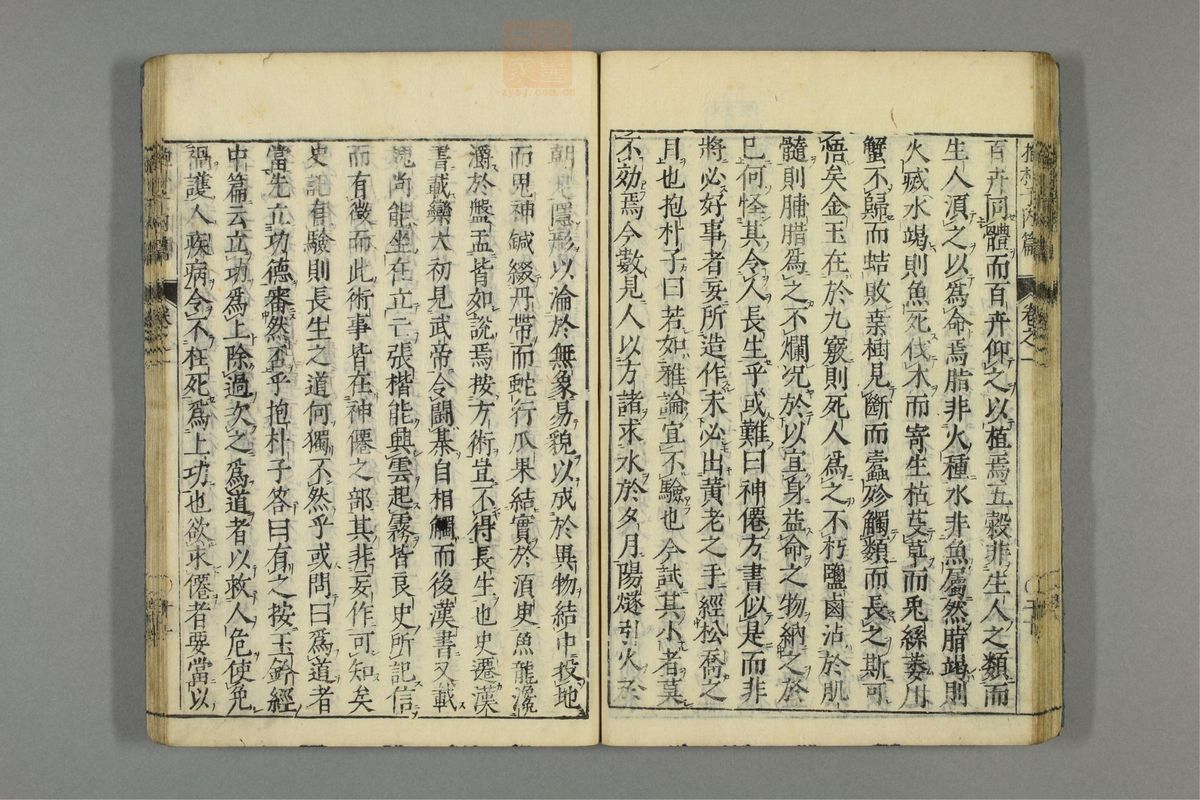 抱朴子內篇　卷之一
百卉同體而百卉仰之以植焉五穀非生人之類而
生人湏之以為命焉脂非火種水非魚屬然脂竭則
火滅水竭則魚死伐木而寄生枯芟草而兎絲萎川
蟹不歸而蛣敗桒樹見斷而蠧殄觸類而長之斯可
悟矣金玉在於九竅則死人為之不朽鹽鹵沾於肌
髓則脯腊為之不爛况於以宜身益命之物納之於
巳何怪其令人長生乎或難曰神僊方書似是而非
將必好事者妄所造作未必出黃老之手經松喬之
目也抱朴子曰若如雅論宜不驗也今試其小者莫
不効焉今數見人以方諸求水於夕月陽燧引火於
朝日隱形以淪於無象易貌以成於異物結巾投地
而鬼神鍼綴丹帶而蛇行瓜果結實於湏臾魚龍瀺
灂於盤盂皆如說焉按方術豈不得長生也史遷漢
書載欒大初見武帝令鬪棊自相觸而後漢書又載
魏尚能坐在立亡張楷能興雲起霧皆良史所記信
而有徵而此術事皆在神僊之部其非妄作可知矣
史記有驗則長生之道何獨不然乎或問曰為道者
當先立功德審然否乎抱朴子荅曰有之按玉鈐經
中篇云立功為上除過次之為道者以救人危使免
禍護人疾病令不枉死為上功也欲求僊者要當以